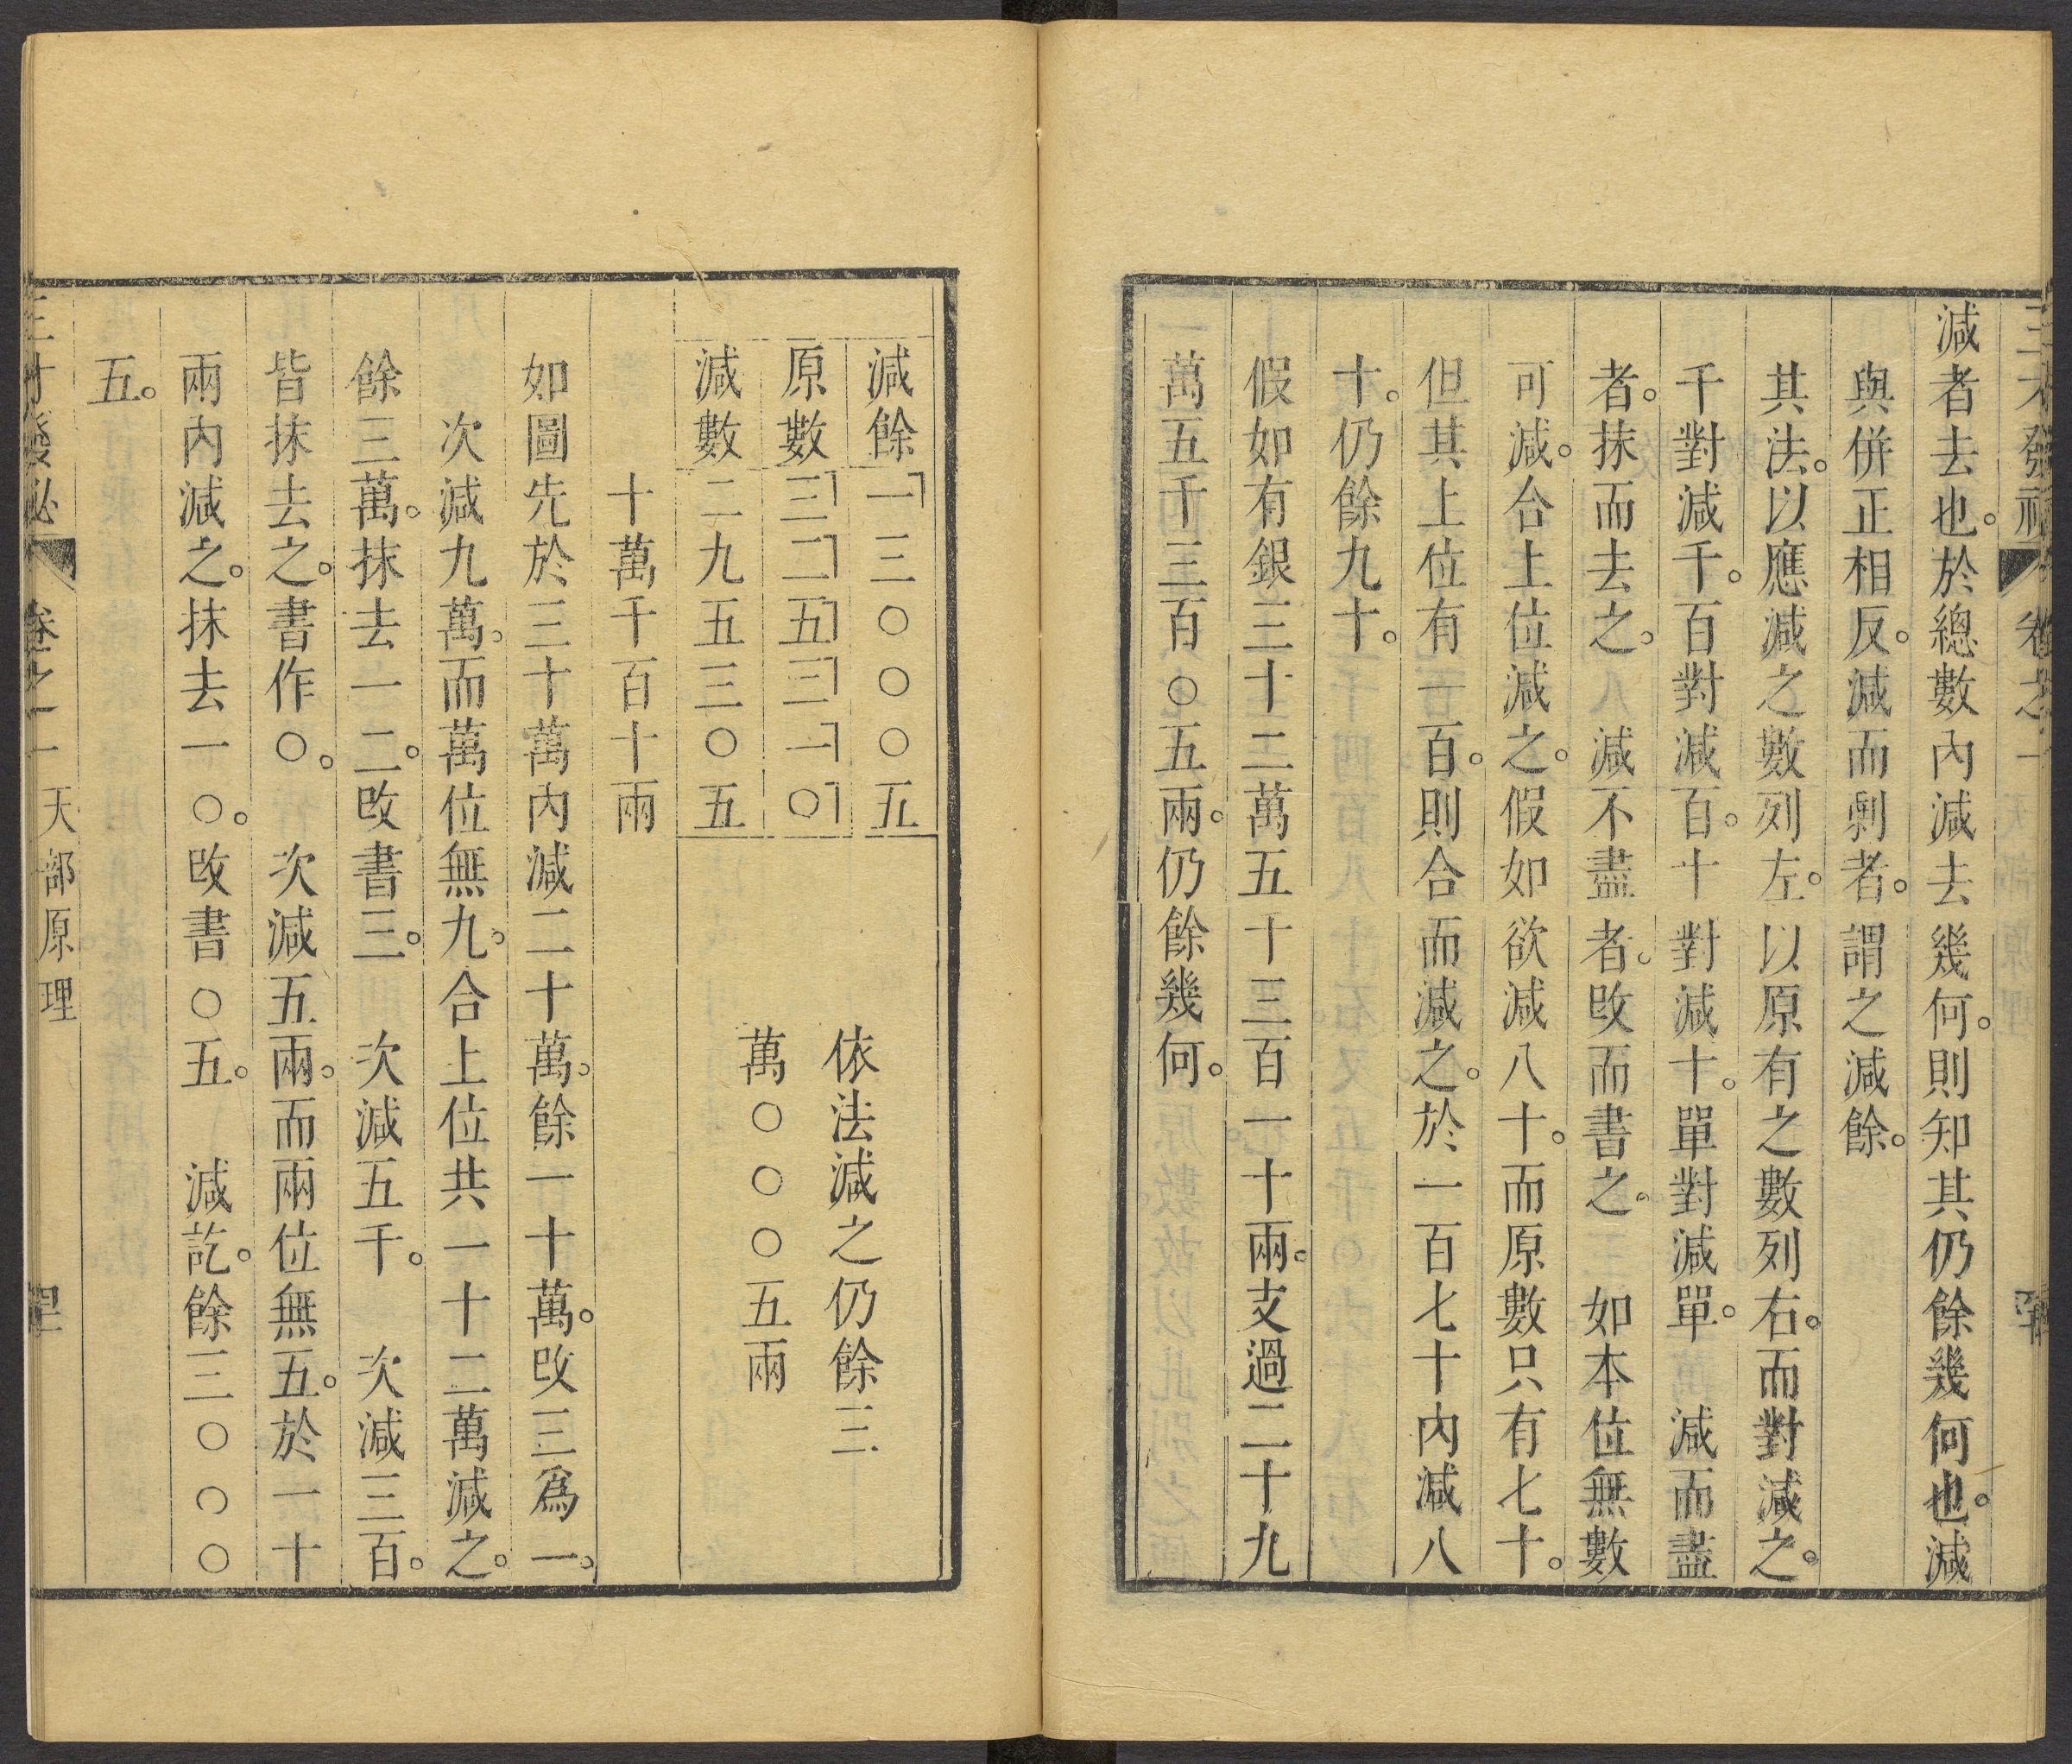 三才發秘 卷之一 天部原理
減者去也。於總數內減去幾何。則知其仍餘幾何也。減
與併正相反。減而剩者。謂之減餘。
其法。以應減之數列左。以原有之數列右。而對減之。
千對減千。百對減百。十對減十。單對減單。減而盡
者。抹而去之。減不盡者。改而書之。如本位無數
可減。合上位減之。假如欲減八十。而原數只有七十。
但其上位有一百。則合而減之。於一百七十內減八
十。仍餘九十。
假如有銀三十二萬五千三百一十兩。支過二十九
萬五千三百○五兩。仍餘幾何。
減餘 一三○○○五
原數 三二五三一○
減數 二九五三○五
十萬千百十兩
依法減之仍餘三
萬○○○五兩
如圖先於三十萬內減二十萬。餘一十萬。改三爲一。
次減九萬。而萬位無九。合上位共一十二萬減之。
餘三萬。抹去一二。改書三。次減五千。次減三百。
皆抹去之。書作○。次減五兩。而兩位無五。於一十
兩內減之。抹去一○。改書○五。減訖。餘三○○○
五。
三才發秘 卷之一 天部原理